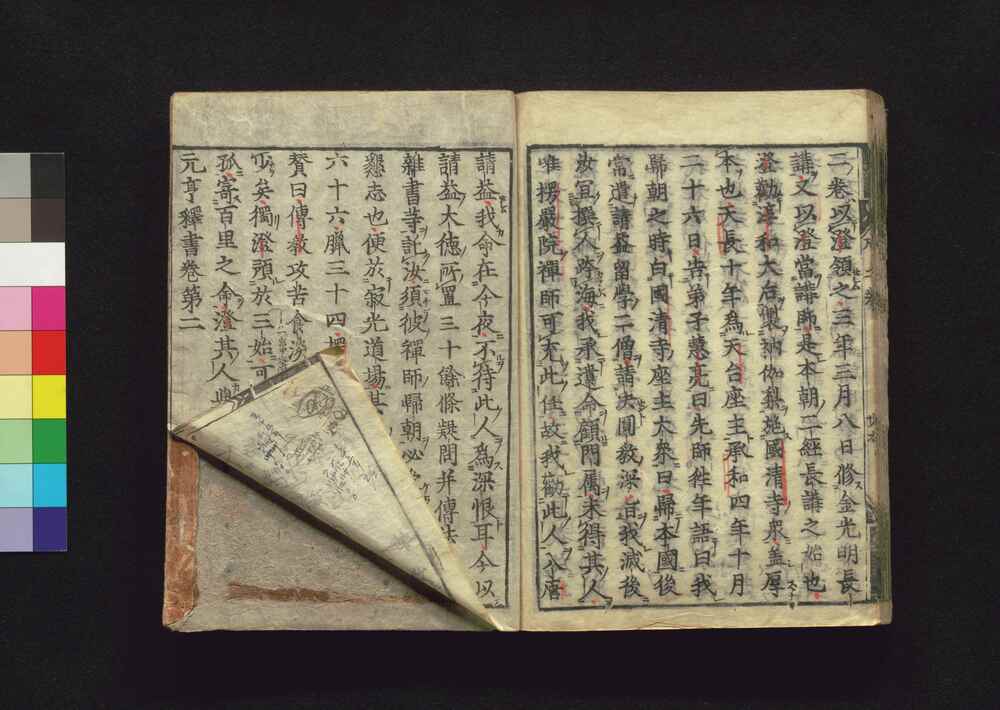 二卷以澄領之三年三月八日修金光明長
講又以澄當講師是本朝三經長講之始也
登勤澄和大台製衲伽梨施國清寺衆蓋厚
本也天長十年為天台座主承和四年十月
二十六日告弟子慧亮曰先師往年語曰我
歸朝之時白國清寺座主大衆曰歸本國後
當遣請益留學二僧請決圓教深旨我滅後
汝宜撰人跨海我承遺命顧門属未得其人
唯楞嚴院禪師可充此任故我勸此人入唐
請益我命在今夜不待此人為深恨耳今以
請益大德所置三十餘條疑問并傳法
雜書等託汝須彼禪師歸朝必
懇志也便於寂光道場其
六十六臘三十四
賛曰傳教攻苦食淡
矣獨澄頭於三始可
孤寄百里之命澄其人與
元亨釋書卷第二